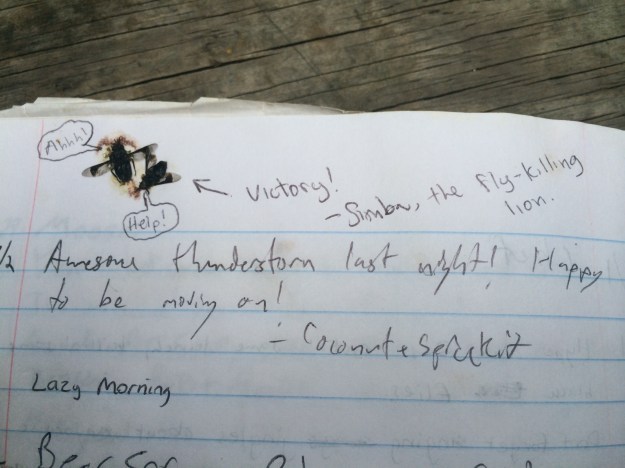 Ahhh!
Help!
Victory!
- Simba, the fly-killing
lion.
Awesome thunderstorm last night! Happy
to be moving on!
- Coconut &
Lazy Morning